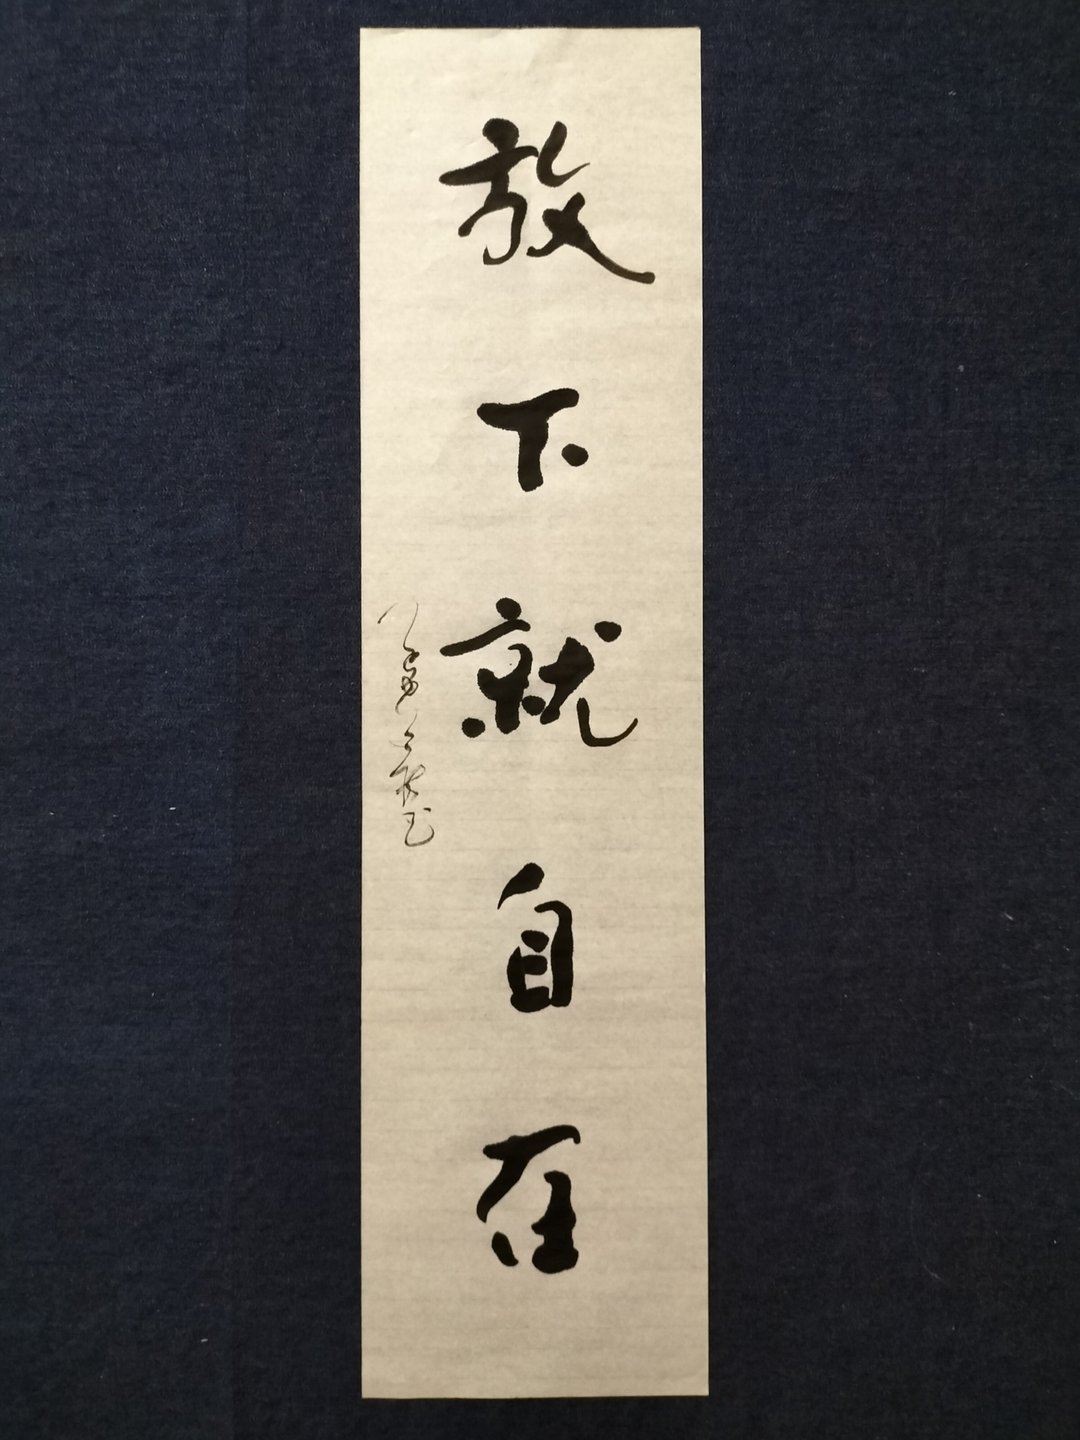 放下就自在